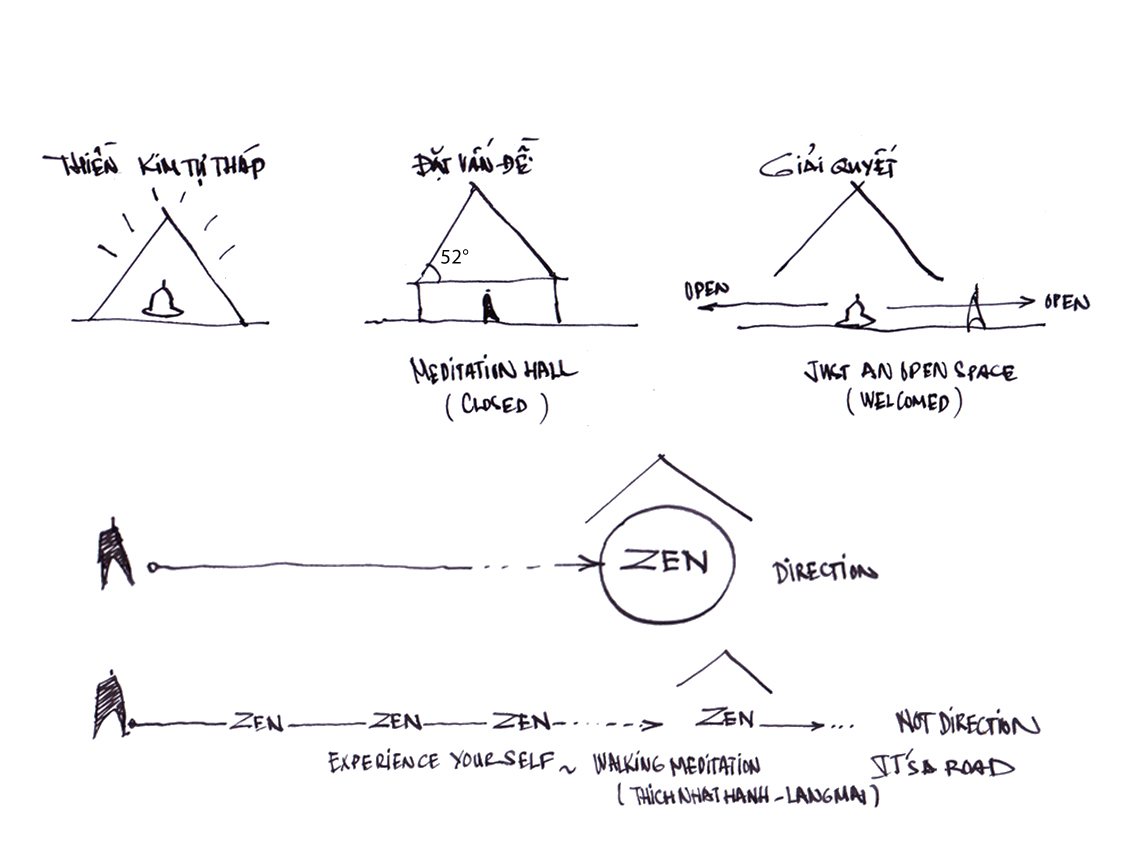 THIỀN KIM TỰ THÁP
ĐẶT VẤN ĐỀ:
GIẢI QUYẾT
52°
OPEN
OPEN
MEDITATION HALL
(CLOSED)
JUST AN OPEN SPACE
(WELCOMED)
ZEN
DIRECTION
ZEN ZEN ZEN ZEN
NOT DIRECTION
EXPERIENCE YOURSELF ~ WALKING MEDITATION
IT'S A ROAD
(THICH NHAT HANH - LANG MAI)